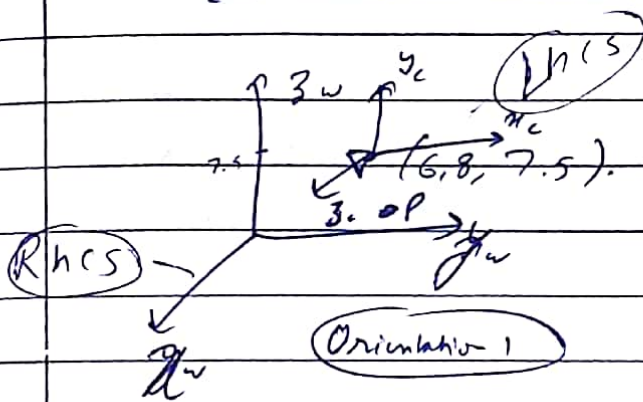 3w yc lhcs
xc
7.5 (6,8, 7.5).
3c op
RhCS yw
Orientation 1
xw